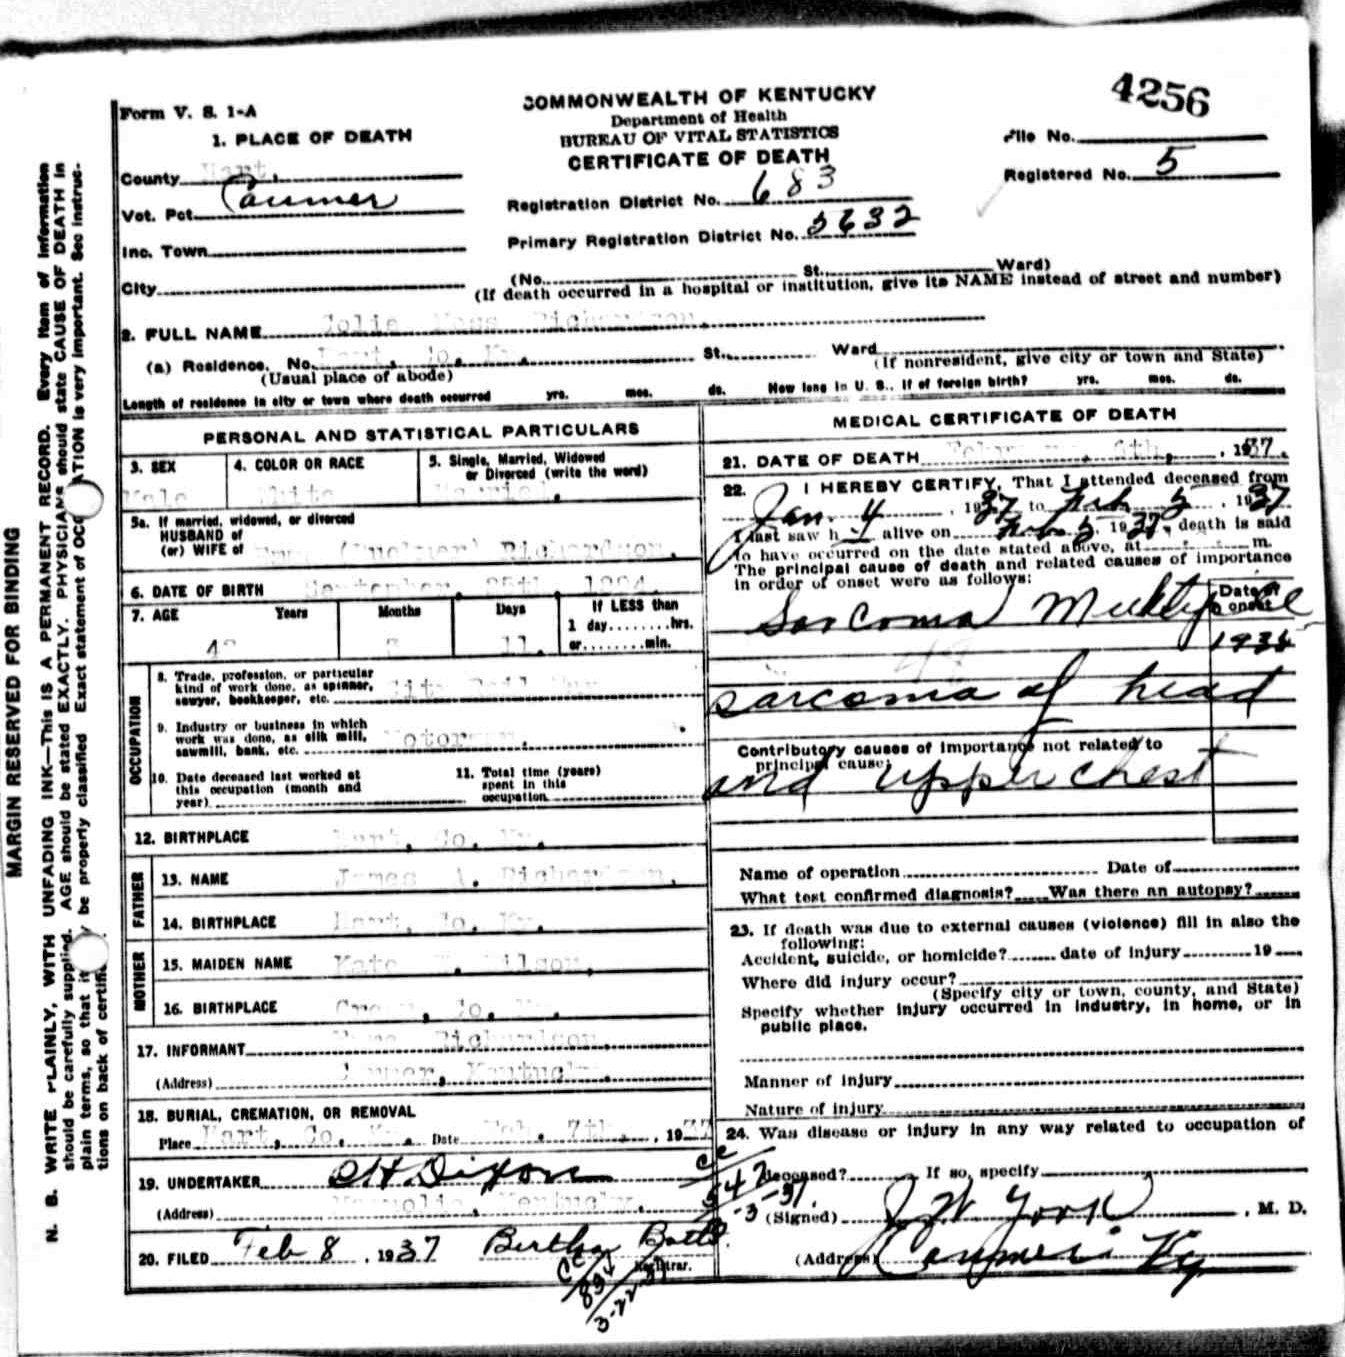 4256
Form V. S. 1-A
COMMONWEALTH OF KENTUCKY
Department of Health
BUREAU OF VITAL STATISTICS
CERTIFICATE OF DEATH
File No.
Registered No. 5
1. PLACE OF DEATH
County Hart,
Vot. Pct. Canmer
Inc. Town
City
Registration District No. 683
Primary Registration District No. 5632
(No. St. Ward)
(If death occurred in a hospital or institution, give its NAME instead of street and number)
2. FULL NAME Jolie Richardson.
(a) Residence. No. Hart, Co. Ky. St. Ward
(Usual place of abode) (If nonresident, give city or town and State)
Length of residence in city or town where death occurred yrs. mos. ds. How long in U. S., if of foreign birth? yrs. mos. ds.
PERSONAL AND STATISTICAL PARTICULARS
3. SEX
Male
4. COLOR OR RACE
White
5. Single, Married, Widowed
or Divorced (write the word)
Married.
5a. If married, widowed, or divorced
HUSBAND of
(or) WIFE of Richardson.
6. DATE OF BIRTH September, 25th,
7. AGE Years Months Days If LESS than
1 day........hrs.
or........min.
11.
OCCUPATION
8. Trade, profession, or particular
kind of work done, as spinner,
sawyer, bookkeeper, etc.
9. Industry or business in which
work was done, as silk mill,
sawmill, bank, etc. Motorman.
10. Date deceased last worked at
this occupation (month and
year)
11. Total time (years)
spent in this
occupation
12. BIRTHPLACE Hart, Co. Ky.
FATHER
13. NAME James A. Richardson.
14. BIRTHPLACE Hart, Co. Ky.
MOTHER
15. MAIDEN NAME Kate Wilson,
16. BIRTHPLACE Green, Co. Ky.
17. INFORMANT Richardson.
(Address) Canmer, Kentucky.
18. BURIAL, CREMATION, OR REMOVAL
Place Hart, Co. Ky. Date Feb. 7th., 1937
19. UNDERTAKER C H Dixon
(Address) Magnolia, Kentucky.
20. FILED Feb 8, 1937 Bertha
Registrar.
MEDICAL CERTIFICATE OF DEATH
21. DATE OF DEATH February, 6th, , 1937.
22. I HEREBY CERTIFY, That I attended deceased from
Jan. 4, 1937 to Feb 5, 1937
I last saw h alive on Feb 5, 1937, death is said
to have occurred on the date stated above, at m.
The principal cause of death and related causes of importance
in order of onset were as follows:
Date of
onset
Sarcoma Multiple
1936
sarcoma of head
Contributory causes of importance not related to
principal cause:
and upper chest
Name of operation Date of
What test confirmed diagnosis? Was there an autopsy?
23. If death was due to external causes (violence) fill in also the
following:
Accident, suicide, or homicide? date of injury 19
Where did injury occur?
(Specify city or town, county, and State)
Specify whether injury occurred in industry, in home, or in
public place.
Manner of injury
Nature of injury
24. Was disease or injury in any way related to occupation of
deceased? If so, specify
(Signed) J W York, M. D.
(Address) Canmer Ky
cc
547
-3-37.
cc
891
3-22-37
MARGIN RESERVED FOR BINDING
N. B. WRITE PLAINLY, WITH UNFADING INK—This is A PERMANENT RECORD. Every item of information
should be carefully supplied. AGE should be stated EXACTLY. PHYSICIANS should state CAUSE OF DEATH in
plain terms, so that it be properly classified. Exact statement of OCCUPATION is very important. See instruc-
tions on back of certificate.